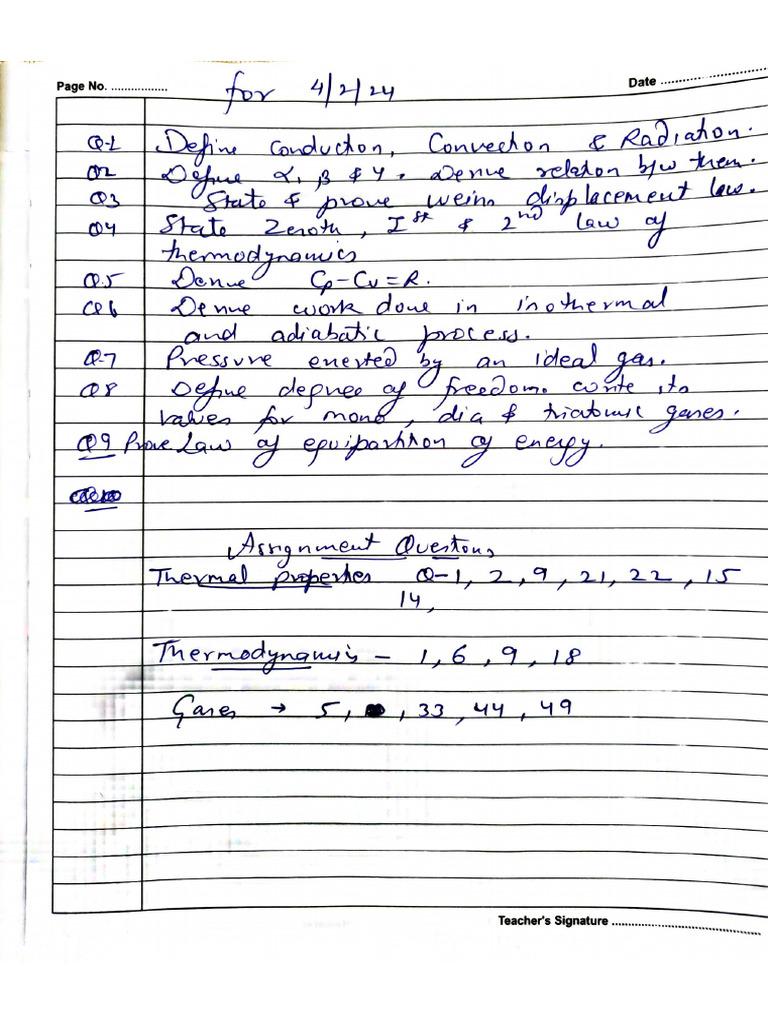 Page No. ................. for 4/2/24 Date ..............................
Q-1 Define Conduction, Convection & Radiation.
Q2 Define α, β & γ. Derive relation b/w them.
Q3 State & prove weins displacement law.
Q4 State Zeroth, Ist & 2nd law of
thermodynamics
Q.5 Derive Cp-Cv=R.
Q6 Derive work done in isothermal
and adiabatic process.
Q-7 Pressure exerted by an ideal gas.
Q8 Define degree of freedom. write its
values for mono, dia & triatomic gases.
Q9 Prove Law of equipartition of energy.
Assignment Questions
Thermal properties Q-1, 2, 9, 21, 22, 15
14,
Thermodynamics - 1, 6, 9, 18
Gases → 5, , 33, 44, 49
Teacher's Signature ........................................